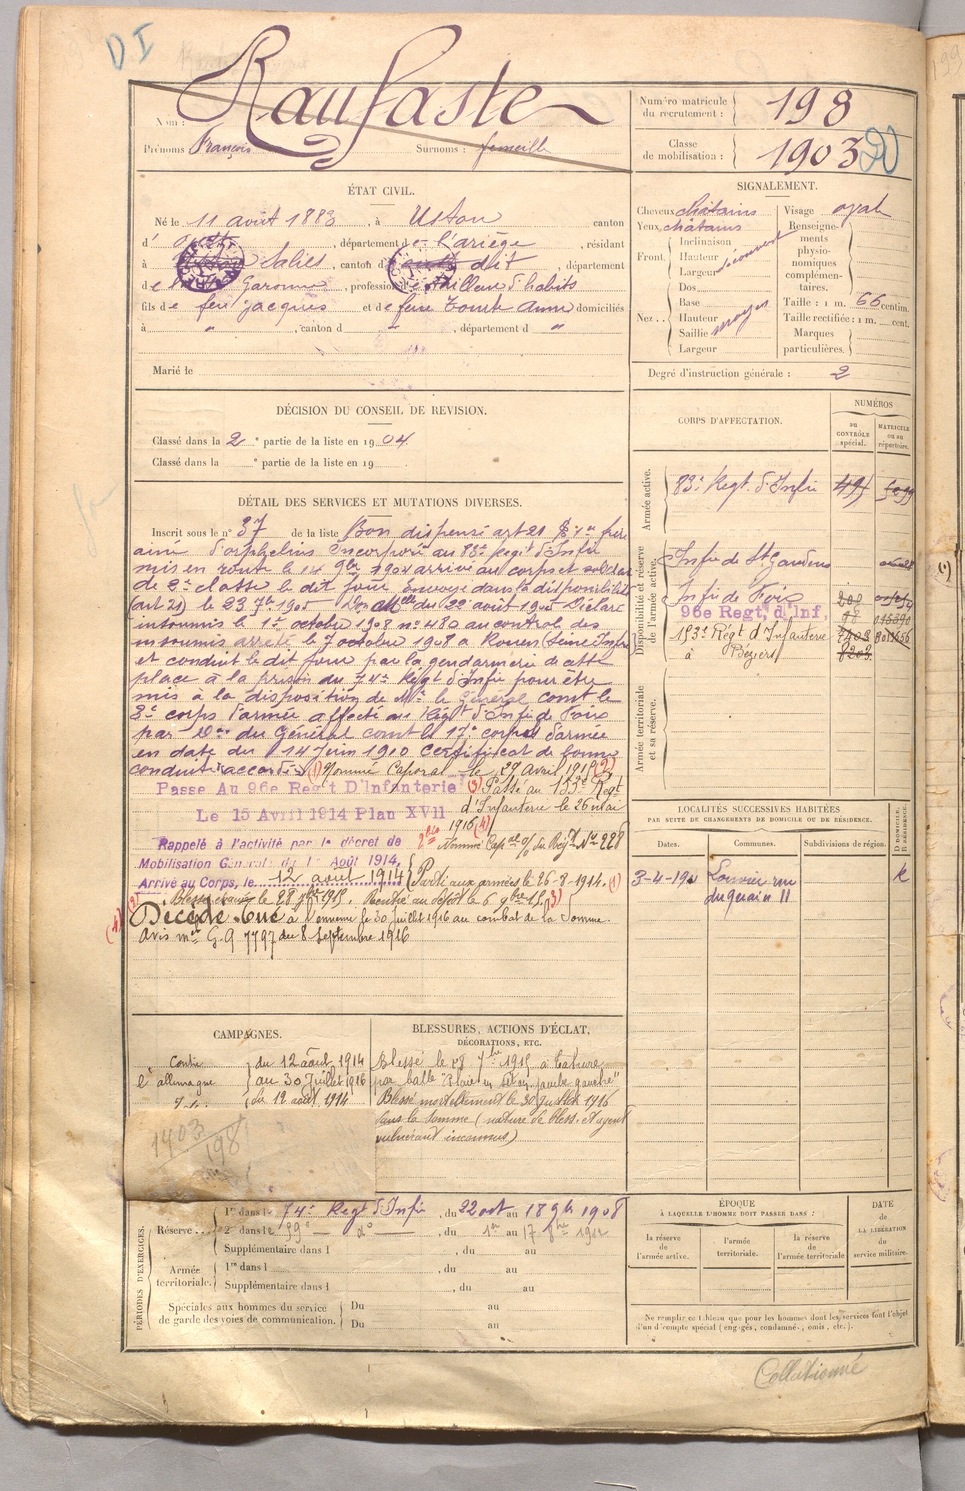 D I
Nom : Raufaste
Prénoms François Surnoms : femeille
Numéro matricule du recrutement : 198
Classe de mobilisation : 1903 20
ÉTAT CIVIL.
Né le 11 août 1883, à Ustou canton
d' oust, département de l'ariège, résidant
à Salies, canton du dit, département
de Garonne, profession de tailleur d'habits
fils de feu jacques et de feue Toust Anne domiciliés
à " , canton d " , département d "
Marié le
SIGNALEMENT.
Cheveux châtains
Yeux châtains
Front. Inclinaison
Hauteur
Largeur découvert
Nez.. Dos
Base
Hauteur
Saillie moyen
Largeur
Visage oval
Renseignements physionomiques complémentaires.
Taille : 1 m. 66 centim.
Taille rectifiée : 1 m. cent.
Marques particulières.
Degré d'instruction générale : 2
DÉCISION DU CONSEIL DE REVISION.
Classé dans la 2e partie de la liste en 1904
Classé dans la e partie de la liste en 19
DÉTAIL DES SERVICES ET MUTATIONS DIVERSES.
Inscrit sous le n° 37 de la liste Bon dispensé art 21
ainé d'orphelins Incorporé au 83e Régt d'Infie
mis en route le 14 9bre 1904 arrivé au corps et soldat
de 2e classe le dit jour Envoyé dans la disponibilité
(art 21) le 23 7bre 1905 du 22 août 1905 Déclaré
insoumis le 1er octobre 1908 n° 480 au contrôle des
insoumis arrêté le 7 octobre 1908 à Rouen (Seine Infre
et conduit le dit jour par la gendarmerie de cette
place à la prison du 74e Régt d'Infie pour être
mis à la disposition de Mr le Général comt le
3e corps d'armée affecté au Régt d'Infie de Foix
par Don du Général comt le 17e corps d'armée
en date du 14 Juin 1910 Certificat de bonne
conduite accordé (1) Nommé Caporal le 29 Avril 1915 (2)
Passe Au 96e Reg't D'Infanterie (3) Passé au 153e Régt
Le 15 Avril 1914 Plan XVII d'Infanterie le 26 mai
1916 (4)
Rappelé à l'activité par le décret de Nommé Capal % du Régt No 228
Mobilisation Générale du 1er Août 1914,
Arrivé au Corps, le 12 août 1914 Parti aux armées le 26-8-1914. (1)
(2) Blessé évacué le 28 7bre 1915. Rentré au dépôt le 6 9bre 15. (3)
(4) Décédé. Tué à l'ennemi le 30 juillet 1916 au combat de la Somme.
Avis mel G.9 7797 du 8 Septembre 1916
CORPS D'AFFECTATION.
NUMÉROS
au CONTRÔLE spécial.
MATRICULE ou au répertoire.
Armée active.
83e Régt d'Infie
Disponibilité et réserve de l'armée active.
Infie de St Gaudens
Infie de Foix
96e Regt, d'Inf.
153e Régt d'Infanterie
à Béziers
Armée territoriale et sa réserve.
LOCALITÉS SUCCESSIVES HABITÉES
PAR SUITE DE CHANGEMENTS DE DOMICILE OU DE RÉSIDENCE.
Dates. Communes. Subdivisions de région. D DOMICILE, R RÉSIDENCE.
Louvier rue
du quai n 11
CAMPAGNES.
Contre du 12 août 1914
l'allemagne au 30 Juillet 1916
du 12 août 1914
1903
198
BLESSURES, ACTIONS D'ÉCLAT, DÉCORATIONS, ETC.
Blessé le 28 7bre 1915 à Tahure
par balle "Plaie en séton jambe gauche"
Blessé mortellement le 30 Juillet 1916
dans la Somme (nature de bless. et agent
vulnérant inconnus)
PÉRIODES D'EXERCICES.
Réserve. 1re dans le 74e Regt d'Infie, du 22 oct au 18 9bre 1908
2e dans le 59e do, du 1er au 17 8bre 1912
Supplémentaire dans l , du au
Armée territoriale. 1re dans l , du au
Supplémentaire dans l , du au
Spéciales aux hommes du service de garde des voies de communication. Du au
Du au
ÉPOQUE
À LAQUELLE L'HOMME DOIT PASSER DANS :
la réserve de l'armée active.
l'armée territoriale.
la réserve de l'armée territoriale
DATE de LA LIBÉRATION du service militaire.
Ne remplir ce tableau que pour les hommes dont les services font l'objet
d'un décompte spécial (engagés, condamnés, omis, etc.).
Collationné